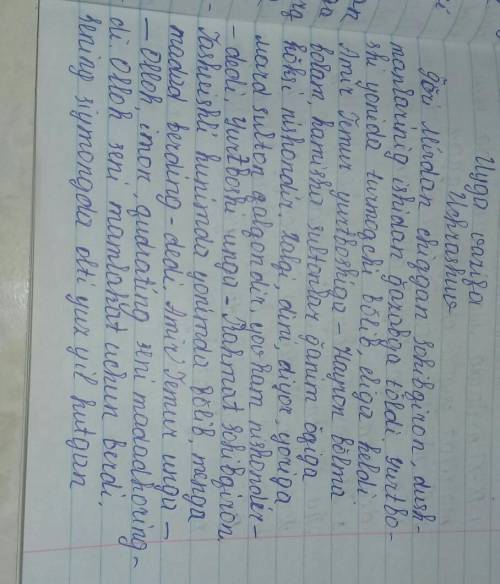 Uyga vazifa
Uchrashuv
Gõri Mirdan chiqqan sohibqiron, dush-
manlarining ishidan ğazabga tõldi yurtbo-
shi yonida turmoqchi bõlib, eliga keldi
Amir Temur yurtboshiga - Hayron bõlma
bolam, hamisha sultonlar ğanim õqiga
kõksi nishondir. Xalqi, dini, diyor, yoviga
mard sulton qalqondir, yov ham nishondir -
- dedi. Yurtboshi unga - Rahmat sohibqiron,
Tashvishli kunimda yonimda bõlib, menga
madad berding - dedi. Amir Temur unga -
- Olloh, imon, qudrating seni madadkoring -
di Olloh seni mamlakat uchun berdi,
sening siymongda olti yuz yil kutgan